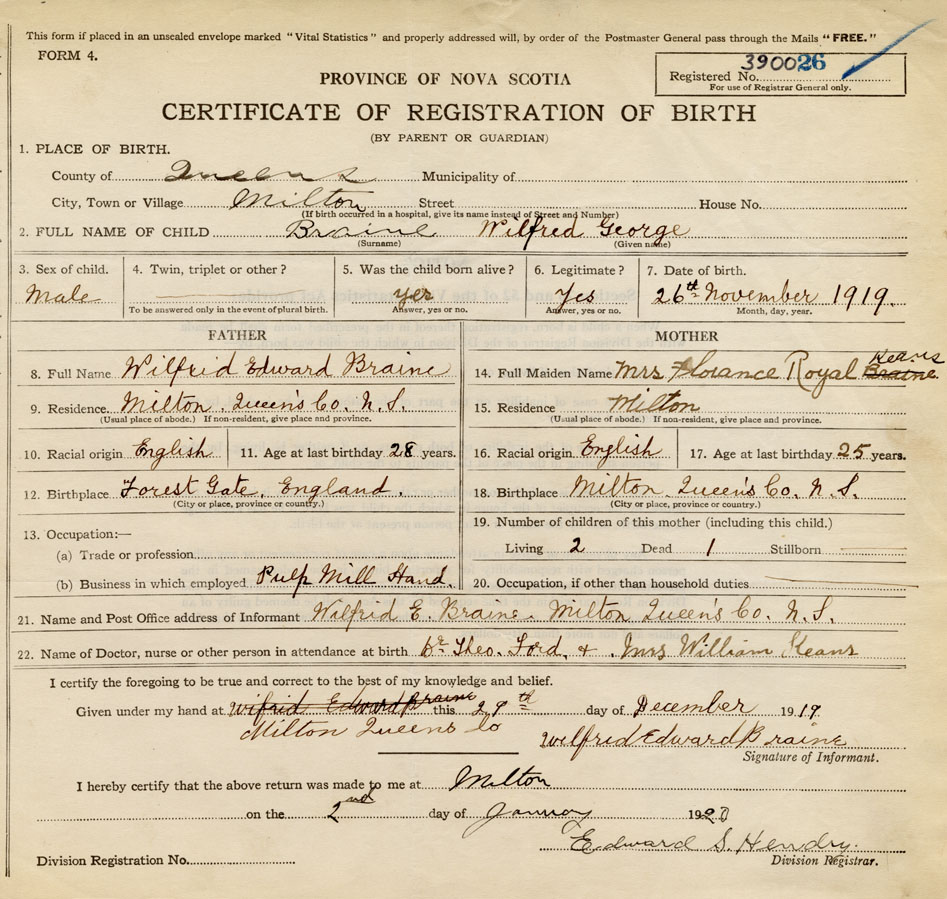 This form if placed in an unsealed envelope marked "Vital Statistics" and properly addressed will, by order of the Postmaster General pass through the Mails "FREE."
FORM 4.
390026
Registered No.
For use of Registrar General only.
PROVINCE OF NOVA SCOTIA
CERTIFICATE OF REGISTRATION OF BIRTH
(BY PARENT OR GUARDIAN)
1. PLACE OF BIRTH.
County of Queens Municipality of
City, Town or Village Milton Street House No.
(If birth occurred in a hospital, give its name instead of Street and Number)
2. FULL NAME OF CHILD Braine Wilfred George
(Surname) (Given name)
3. Sex of child. 4. Twin, triplet or other? 5. Was the child born alive? 6. Legitimate? 7. Date of birth.
Male yes Yes 26th November 1919.
To be answered only in the event of plural birth. Answer, yes or no. Answer, yes or no. Month, day, year.
FATHER MOTHER
8. Full Name Wilfrid Edward Braine
9. Residence Milton. Queen's Co. N. S.
(Usual place of abode.) If non-resident, give place and province.
10. Racial origin English 11. Age at last birthday 28 years.
12. Birthplace Forest Gate, England.
(City or place, province or country.)
13. Occupation:—
(a) Trade or profession
(b) Business in which employed Pulp Mill Hand.
14. Full Maiden Name Mrs Florance Royal Braine Keans
15. Residence Milton
(Usual place of abode.) If non-resident, give place and province.
16. Racial origin English 17. Age at last birthday 25 years.
18. Birthplace Milton Queen's Co. N. S.
(City or place, province or country.)
19. Number of children of this mother (including this child.)
Living 2 Dead 1 Stillborn
20. Occupation, if other than household duties
21. Name and Post Office address of Informant Wilfrid E. Braine. Milton Queen's Co. N. S.
22. Name of Doctor, nurse or other person in attendance at birth Dr. Theo. Ford. & Mrs William Keans
I certify the foregoing to be true and correct to the best of my knowledge and belief.
Given under my hand at Wifrid Edward Braine this 29th day of December 1919
Milton Queens Co
Wilfrid Edward Braine
Signature of Informant.
I hereby certify that the above return was made to me at Milton
on the 2nd day of January 1920
Edward S. Hendry.
Division Registration No. Division Registrar.